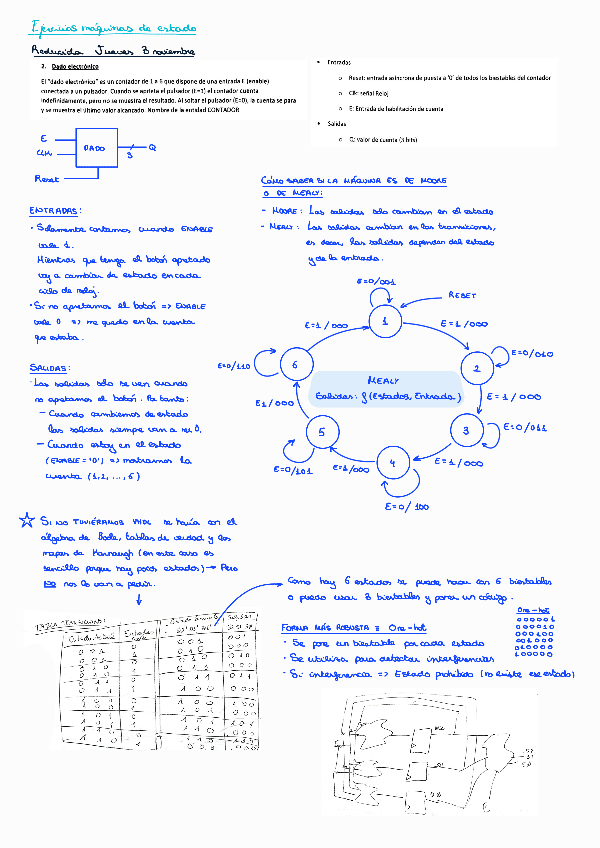 Ejercicios máquinas de estado
Reducida Jueves 3 noviembre
2. Dado electrónico
El "dado electrónico" es un contador de 1 a 6 que dispone de una entrada E (enable)
conectada a un pulsador. Cuando se aprieta el pulsador (E=1) el contador cuenta
indefinidamente, pero no se muestra el resultado. Al soltar el pulsador (E=0), la cuenta se para
y se muestra el último valor alcanzado. Nombre de la entidad CONTADOR
• Entradas
o Reset: entrada asíncrona de puesta a '0' de todos los biestables del contador
o Clk: señal Reloj
o E: Entrada de habilitación de cuenta
• Salidas
o Q: valor de cuenta (3 bits)
E
CLK
Reset
DADO
3
Q
CÓMO SABER SI LA MÁQUINA ES DE MOORE
O DE MEALY:
- MOORE: Las salidas solo cambian en el estado
- MEALY: Las salidas cambian en las transiciones,
es decir, las salidas dependen del estado
y de la entrada.
ENTRADAS:
• Solamente contamos cuando ENABLE
vale 1.
Mientras que tenga el botón apretado
voy a cambiar de estado en cada
ciclo de reloj.
• Si no apretamos el botón => ENABLE
vale 0 => me quedo en la cuenta
que estaba.
SALIDAS:
• Las salidas sólo se ven cuando
no apretamos el botón. Por tanto:
— Cuando cambiemos de estado
las salidas siempre van a ser 0.
— Cuando estoy en el estado
(ENABLE = '0') => mostramos la
cuenta (1,2, ..., 6)
E=0/001
RESET
1
E=1/000
E=1/000
E=0/110
6
2
E=0/010
MEALY
Salidas: f(Estados, Entrada)
E1/000
E=1/000
5
3
E=0/011
E=0/101
E=1/000
4
E=1/000
E=0/100
☆ SI NO TUVIÉRAMOS VHDL se haría con el
álgebra de Boole, tablas de verdad y los
mapas de Karnaugh (en este caso es
sencillo porque hay pocos estados) → Pero
NO nos lo van a pedir.
Como hay 6 estados se puede hacer con 6 biestables
o puedo usar 3 biestables y poner un código.
FORMA MÁS ROBUSTA = One-hot
• Se pone un biestable por cada estado
• Se utiliza para detectar interferencias
• Si interferencia => Estado prohibido (no existe ese estado)
One-hot
000001
000010
000100
001000
010000
100000